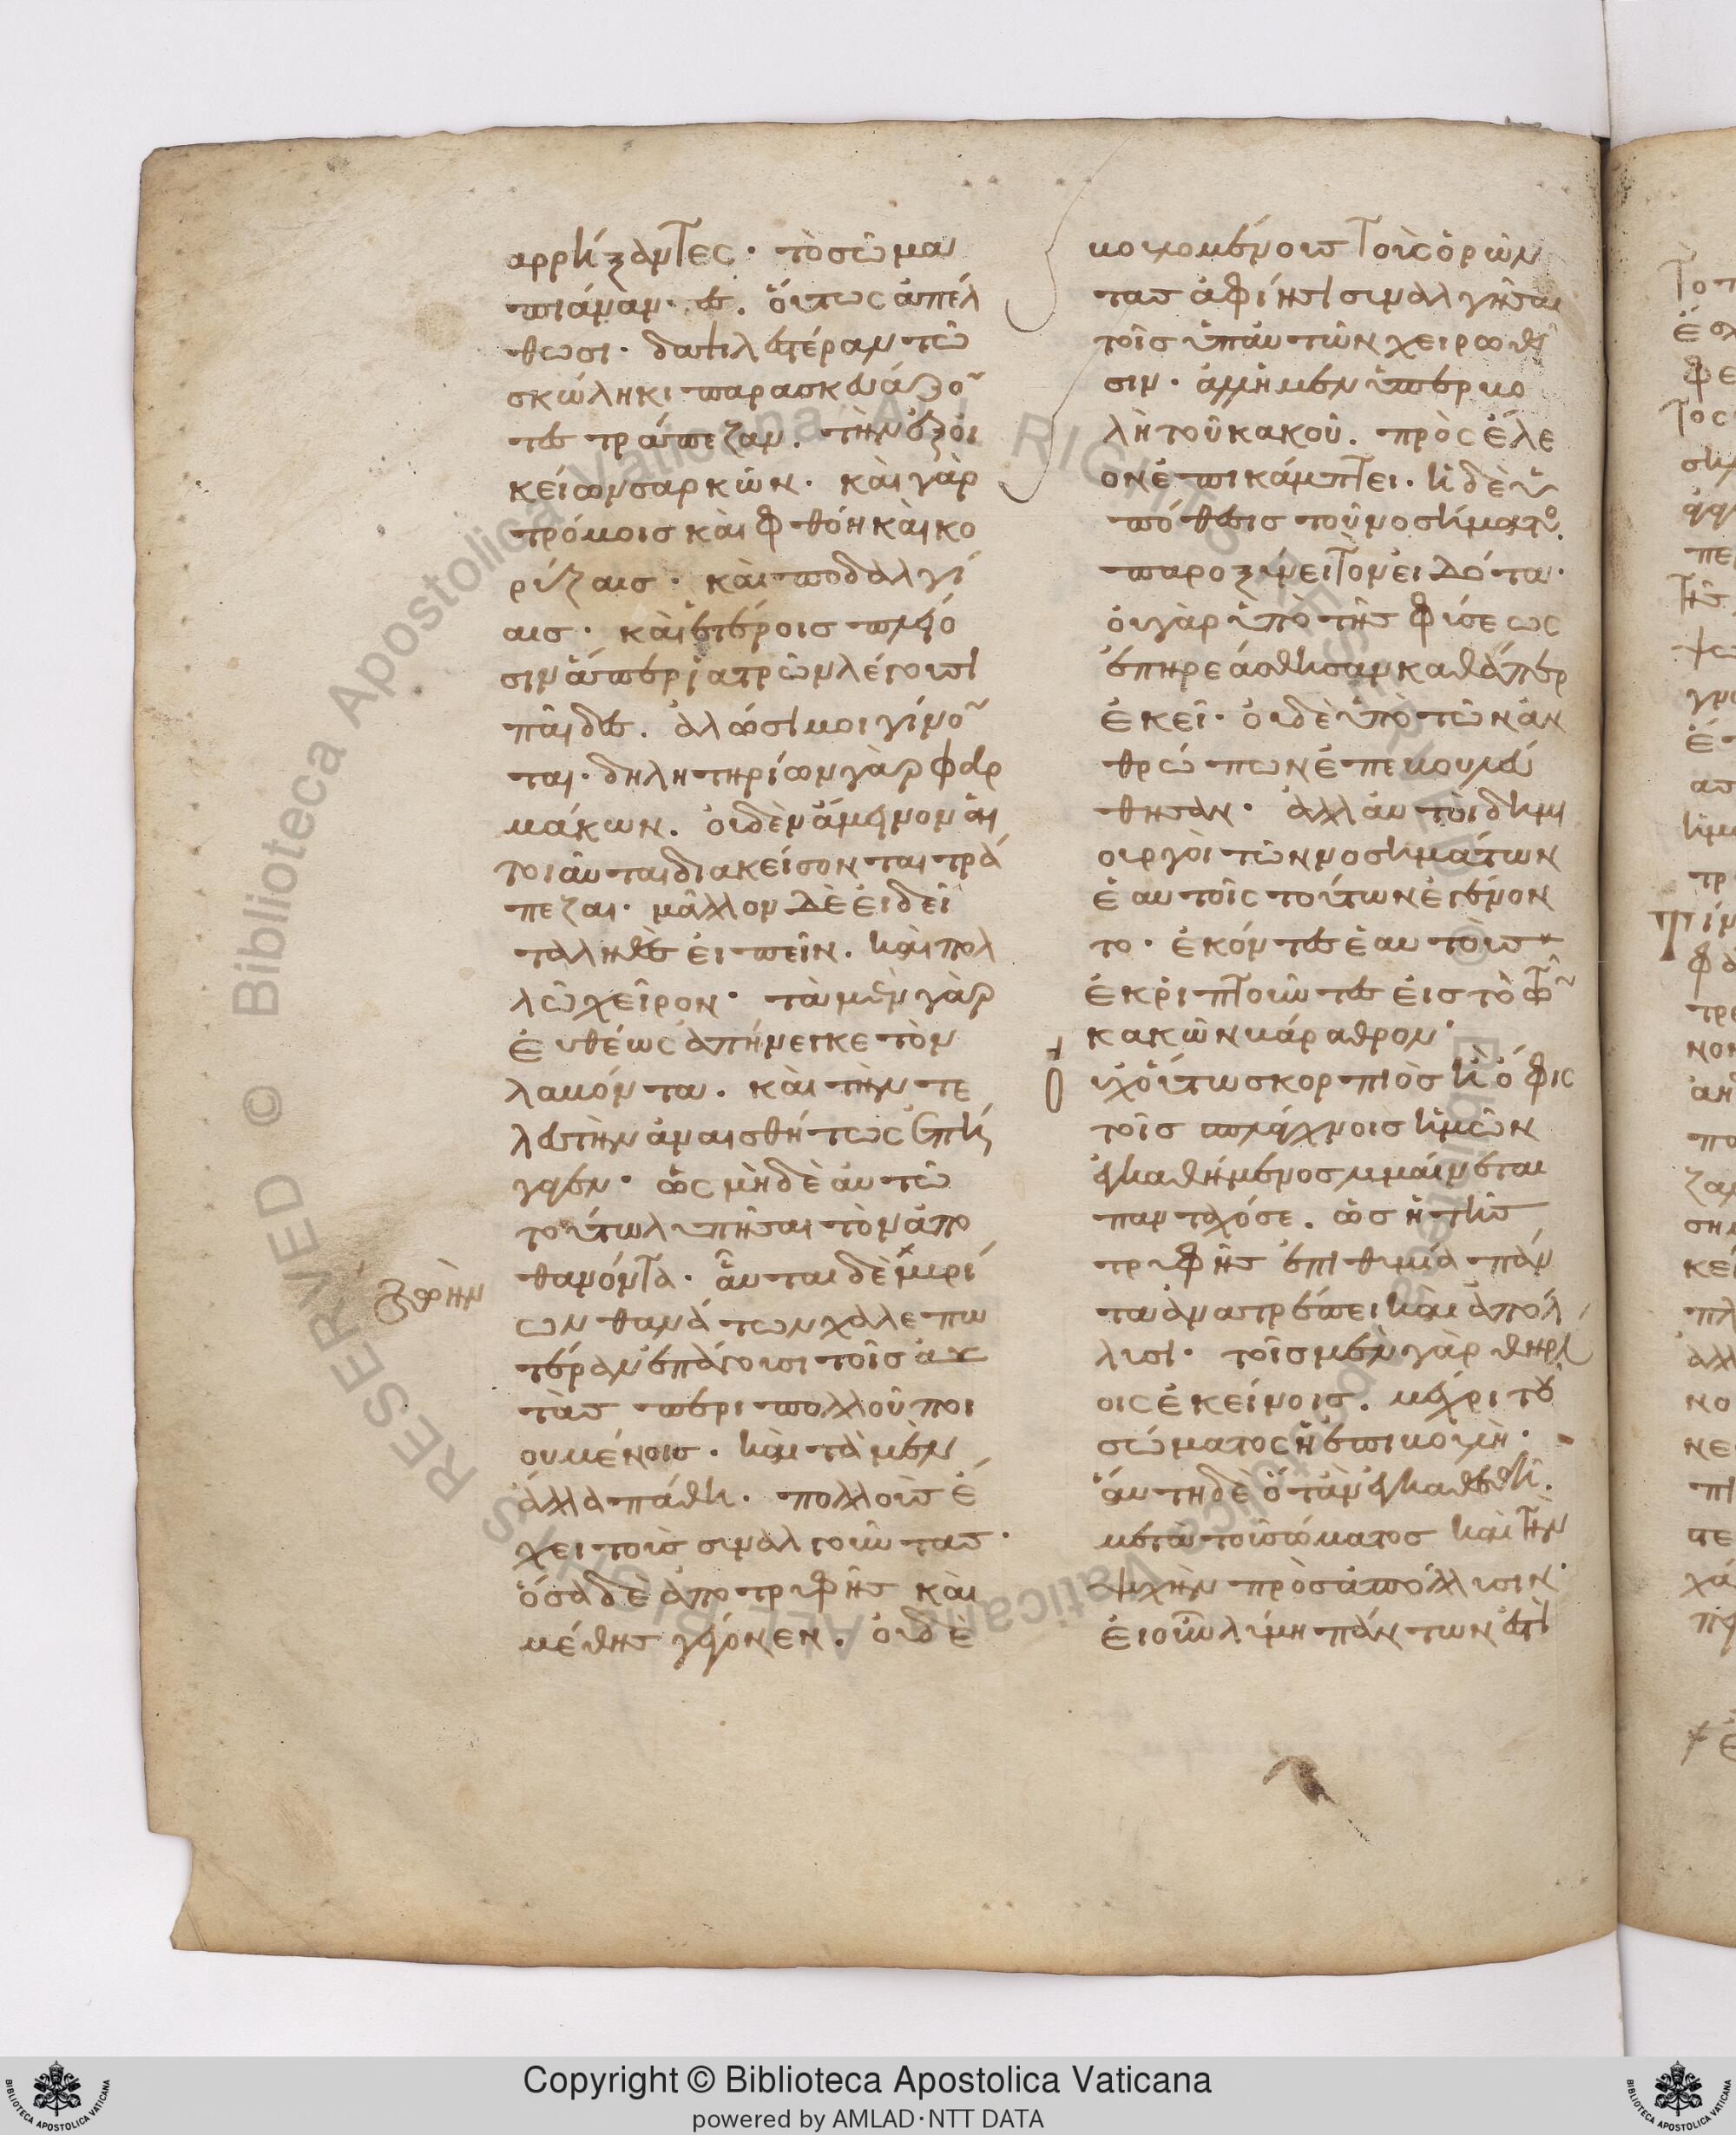 αρρήξαντες· τὸ σῶμα
πιάναντες. οὕτως ἀπέλ
θωσι· δαψιλεστέραν τῶ
σκώληκι παρασκευάζον
τες τράπεζαν. τὴν ἐξ οἰ
κείων σαρκῶν· καὶ γὰρ
τρόμοις καὶ φθόη καὶ κο
ρύζαις· καὶ ποδαλγί
αις· καὶ ἑτέροις πλείο
σιν ἅπερ ἰατρῶν λέγουσι
παῖδες. ἁλώσιμοι γίνον
ται· δηλητηρίων γὰρ φαρ
μάκων. οὐδὲν ἄμεινον αἱ
τοιαῦται διακείσονται τρά
πεζαι· μᾶλλον δὲ εἰ δεῖ
τἀληθὲς εἰπεῖν. καὶ πολ
λῶ χεῖρον· τὰ μὲν γὰρ
εὐθέως ἀπήνεγκε τὸν
λαβόντα. καὶ τὴν τε
λευτὴν ἀναισθήτως ἐπή
γαγεν· ὡς μηδὲ αὐτῶ
τούτω λυπῆσαι τὸν ἀπο
θανόντα· αὗται δὲ μυρί
ων θανάτων χαλεπω
τέραν ἐπάγουσι τοῖς αὐ
τὰς περὶ πολλοῦ ποι
ουμένοις· καὶ τὰ μὲν
ἄλλα πάθη· πολλοὺς ἔ
χει τοὺς συναλγοῦντας·
ὅσα δὲ ἀπὸ τρυφῆς καὶ
μέθης γέγονεν. οὐδὲ
βουλομένους τοὺς ὁρῶν
τας ἀφίησι συναλγῆσαι
τοῖς ὑπ' αὐτῶν χειρωθεῖ
σιν· ἀλλ' ἡ μὲν ὑπερβο
λὴ τοῦ κακοῦ. πρὸς ἔλε
ον ἐπικάμπτει· ἡ δὲ ὑ
πόθεσις τοῦ νοσήματος.
παροξύνει τὸν εἰδότα·
οὐ γὰρ ὑπὸ τῆς φύσεως
ἐπηρεάσθησαν καθάπερ
ἐκεῖ· οὐδὲ ὑπὸ τῶν ἀν
θρώπων ἐπεβουλεύ
θησαν· ἀλλ' αὐτοὶ δημι
ουργοὶ τῶν νοσημάτων
ἑαυτοῖς τούτων ἐγένον
το· ἑκόντες ἑαυτοὺς
ἐκριπτοῦντες εἰς τὸ τῶν
κακῶν βάραθρον·
Οὐχ οὕτω σκορπιὸς ἢ ὄφις
τοῖς σπλάγχνοις ἡμῶν
ἐγκαθήμενος λυμαίνεται
πανταχόσε. ὡς ἡ τῆς
τρυφῆς ἐπιθυμία πάν
τα ἀνατρέπει καὶ ἀπόλ
λυσι· τοῖς μὲν γὰρ θηρί
οις ἐκείνοις. μέχρι τοῦ
σώματος ἡ ἐπιβουλή·
αὕτη δὲ ὅταν ἐγκαθεσθῆ.
μετὰ τοῦ σώματος καὶ τὴν
ψυχὴν προσαπόλλυσιν·
εἰ οὖν λύμη πάντων ἐστὶ